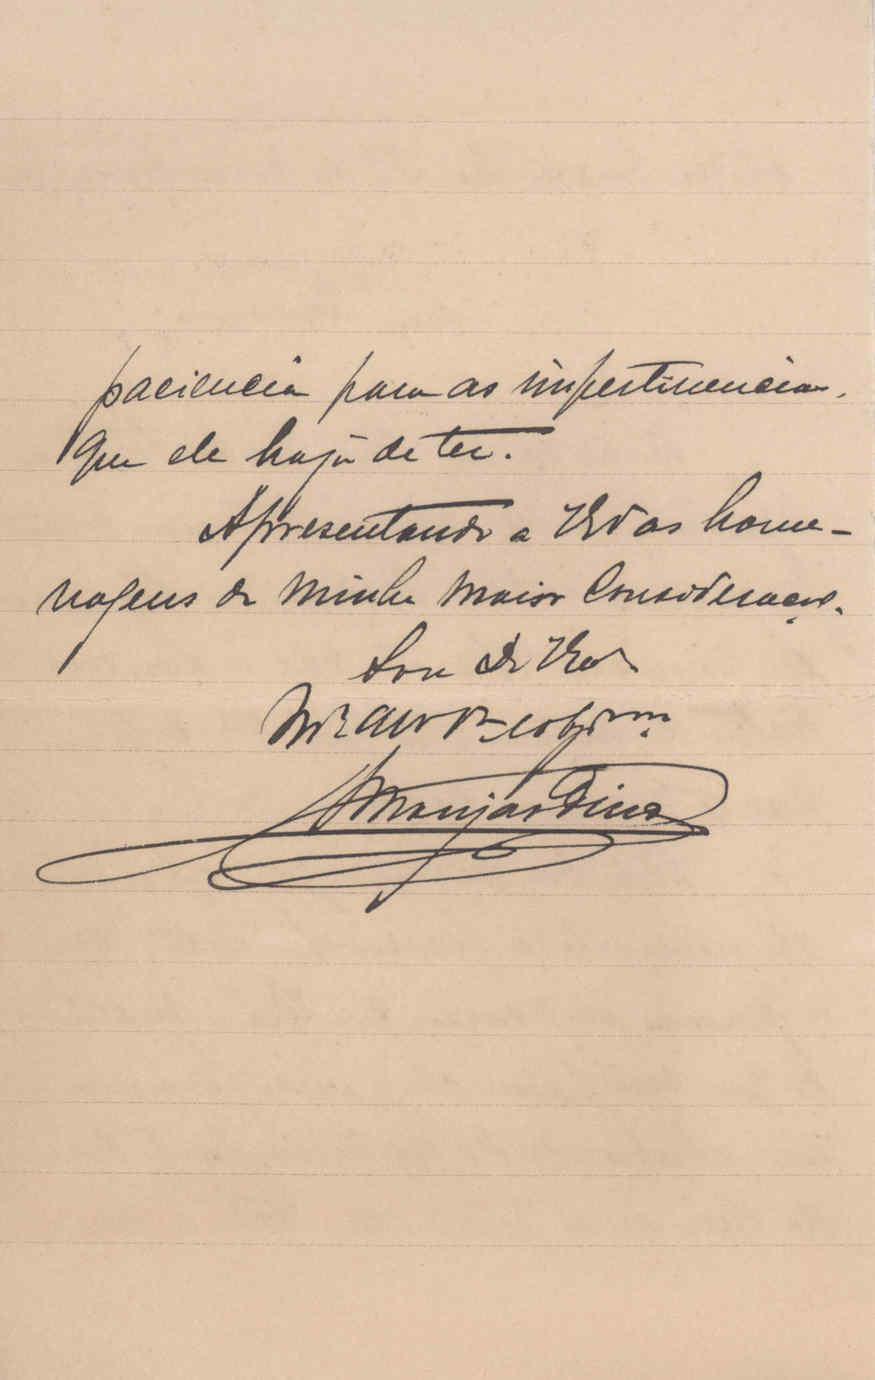 paciencia para as impertinencias
que ele haja de ter.
Apresentando a VExª as home-
nagens de minha maior consideração.
Sou De VExª